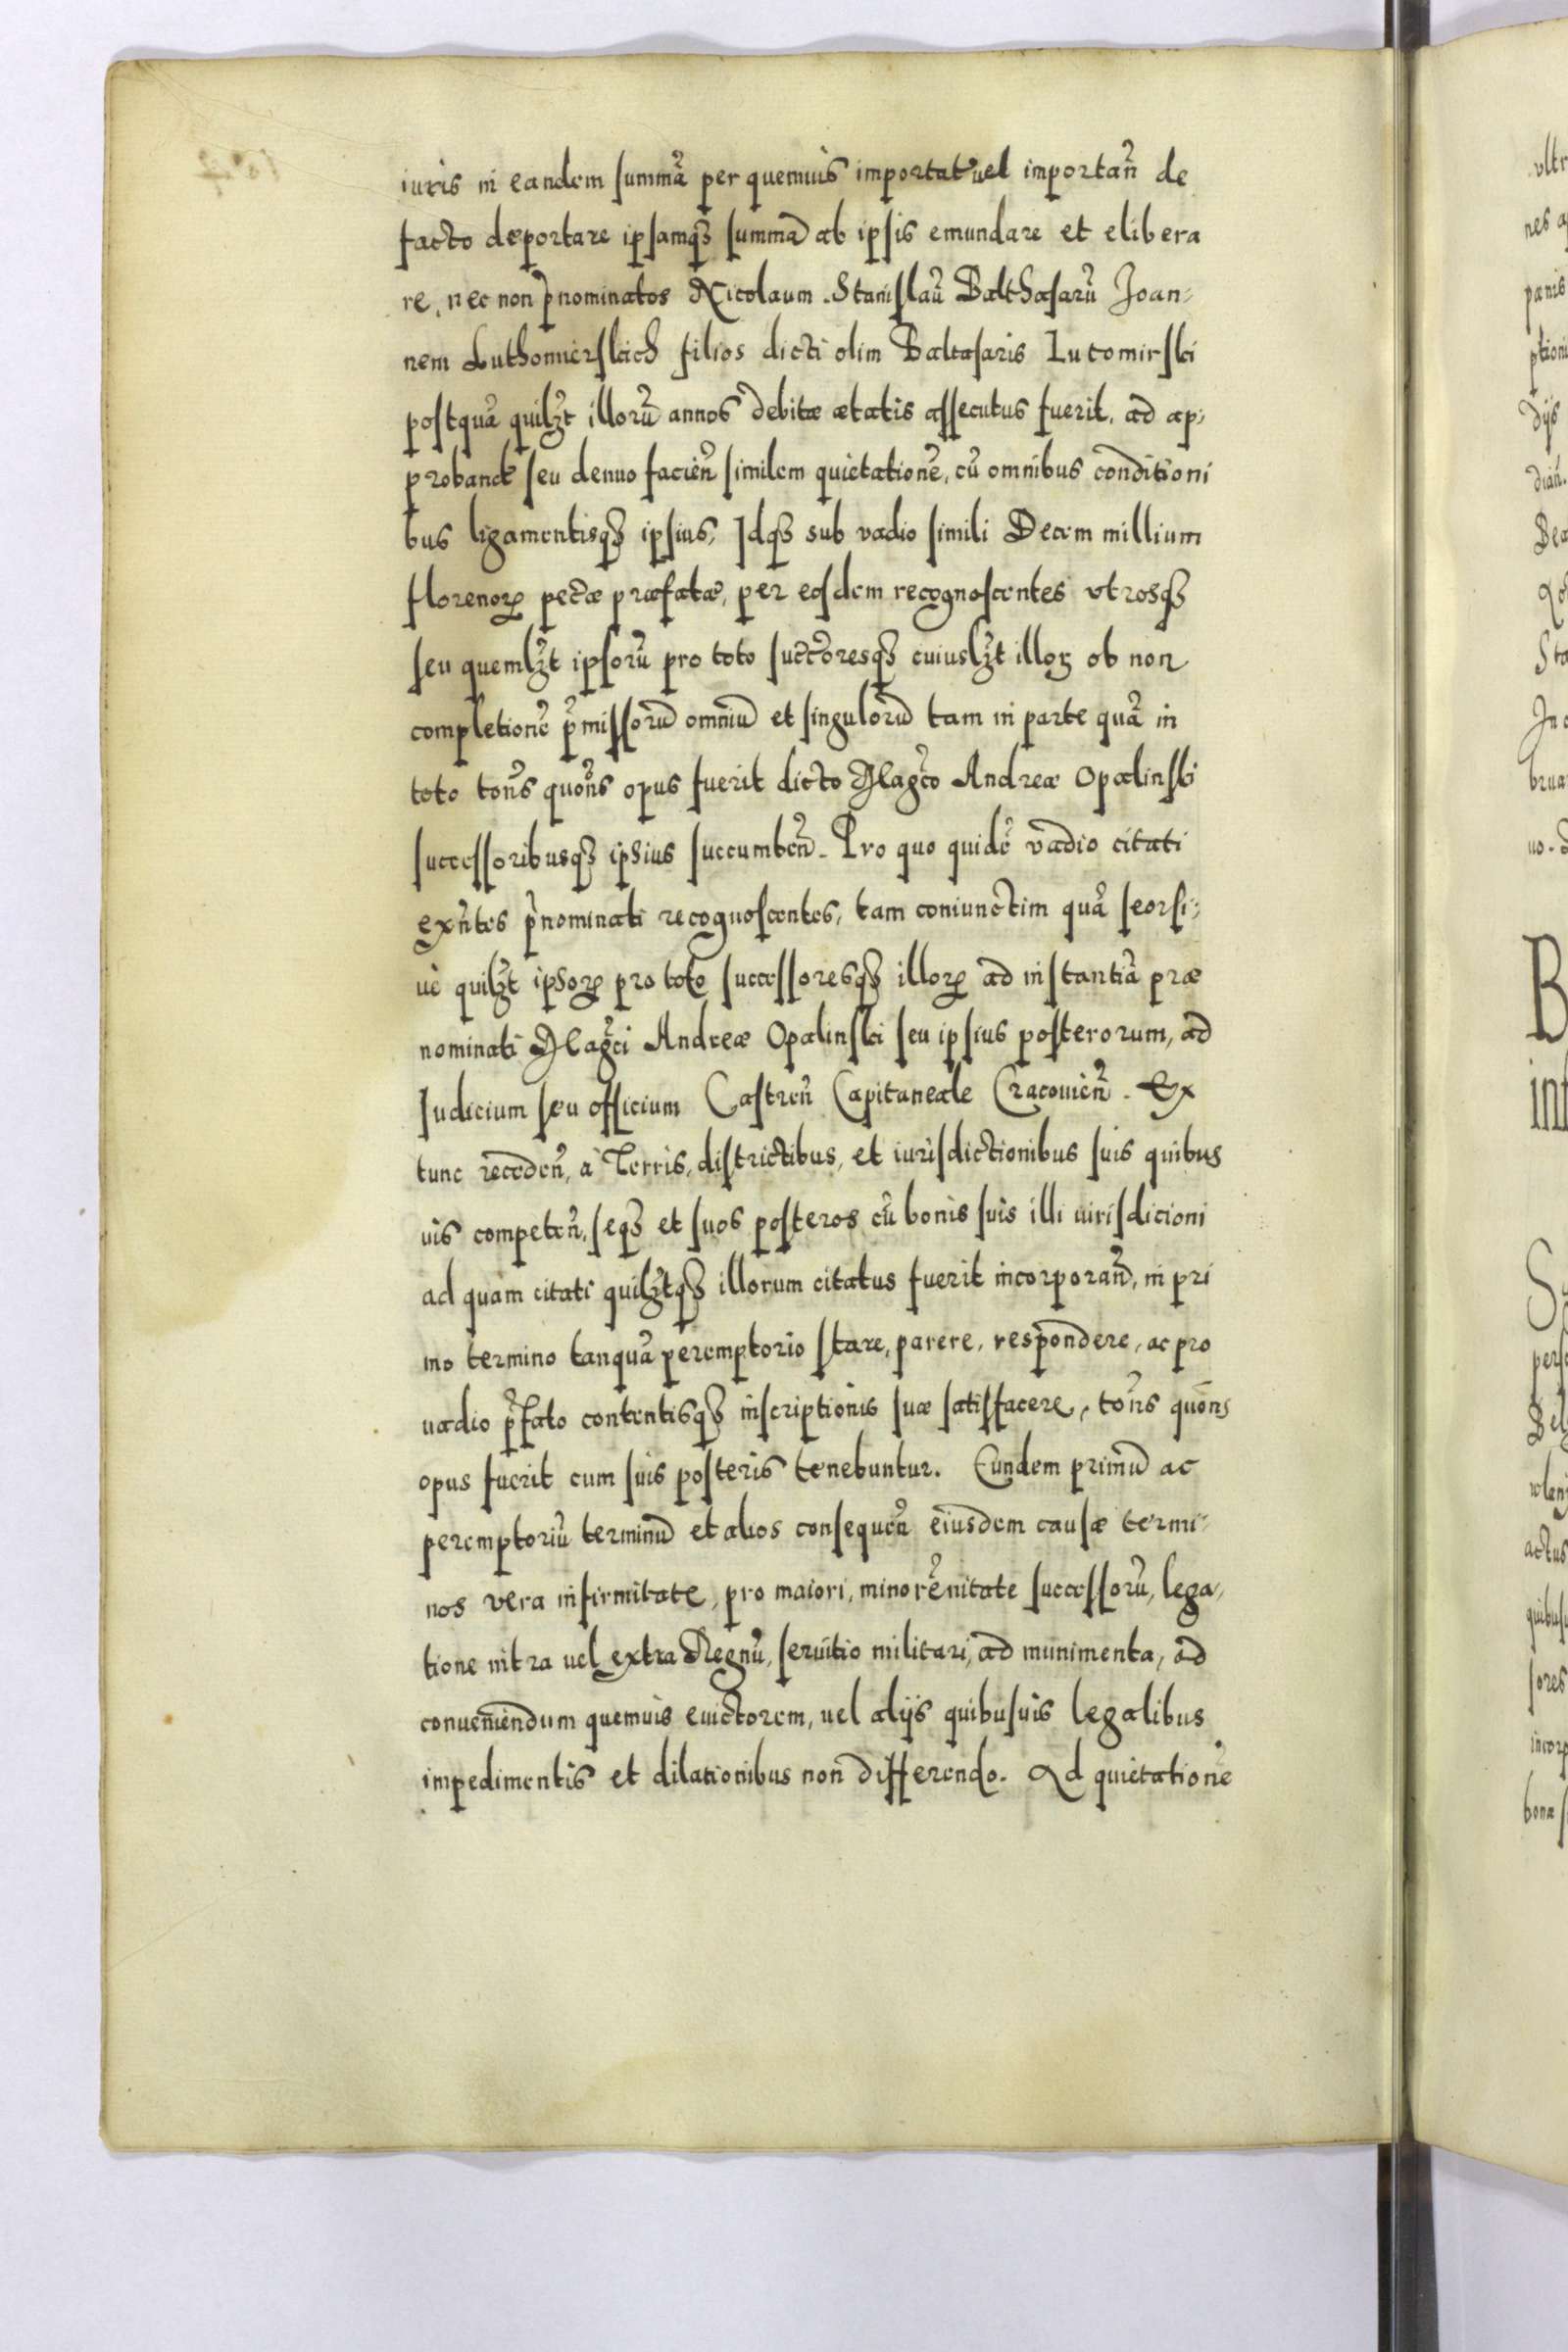 iuris in eandem summã per quemuis importat uel importañ de
facto deportare ipsamqꝫ summã ab ipsis emundare et elibera
re, nec non p̃nominatos Nicolaum Stanislaũ Balthasarũ Joan-
nem Luthomierskich filios dicti olim Baltasaris Lutomirski
postquã quilꝫt illorũ annos debitæ ætatis assecutus fuerit, ad ap-
proband seu denuo facieñ similem quietationẽ, cũ omnibus conditioni
bus ligamentisqꝫ ipsius, Idqꝫ sub vadio simili Decem millium
florenorꝝ pecæ præfatæ, per eosdem recognoscentes vtrosqꝫ
seu quemlꝫt ipsorũ pro toto succoresqꝫ cuiuslꝫt illoꝝ ob non
completionẽ p̃missorũ omniũ et singulorũ tam in parte quã in
toto toñs quoñs opus fuerit dicto Magco Andreæ Opalinski
successoribusqꝫ ipsius succumbeñ. Pro quo quidẽ vadio citati
exñtes p̃nominati recognoscentes, tam coniunctim quã seorsi-
uè quilꝫt ipsorꝝ pro toto successoresqꝫ illorꝝ ad instantiã præ
nominati Magci Andreæ Opalinski seu ipsius posterorum, ad
Judicium seu officium Castreñ Capitaneale Cracouieñ. Ex
tunc recedeñ, à Terris, districtibus, et iurisdictionibus suis quibus
uis competeñ, seqꝫ et suos posteros cũ bonis suis illi iurisdicioni
ad quam citati quilꝫtqꝫ illorum citatus fuerit incorporañ, in pri
mo termino tanquã peremptorio stare, parere, respondere, ac pro
vadio p̃fato contentisqꝫ inscriptionis suæ satisfacere, toñs quoñs
opus fuerit cum suis posteris tenebuntur. Eundem primũ ac
peremptoriũ terminũ et alios consequeñ eiusdem causæ termi-
nos vera infirmitate, pro maiori, minorẽnitate successorũ, lega-
tione intra uel extra Regnũ, seruitio militari, ad munimenta, ad
conueniendum quemuis euictorem, uel alijs quibusuis legalibus
impedimentis et dilationibus non differendo. Ad quietationẽ